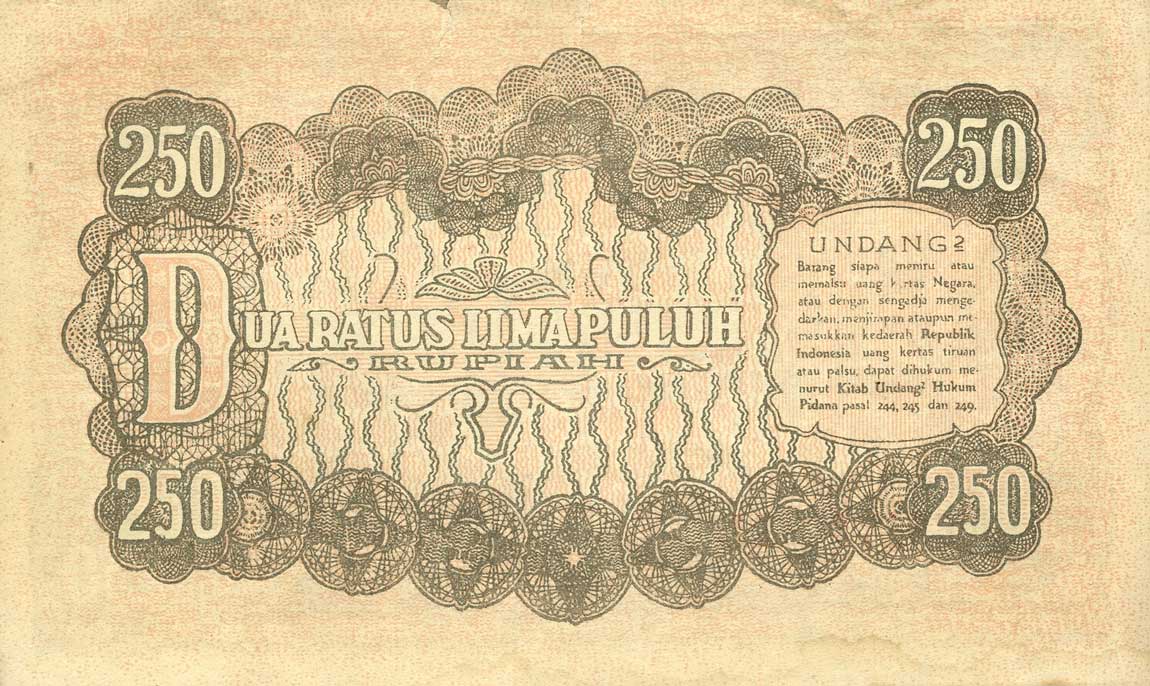 250
250
UNDANG2
Barang siapa meniru atau
memalsu uang kertas Negara,
atau dengan sengadja menge-
darkan, menjimpan ataupun me-
masukkan kedaerah Republik
Indonesia uang kertas tiruan
atau palsu, dapat dihukum me-
nurut Kitab Undang2 Hukum
Pidana pasal 244, 245 dan 249.
DUA RATUS LIMA PULUH
RUPIAH
250
250